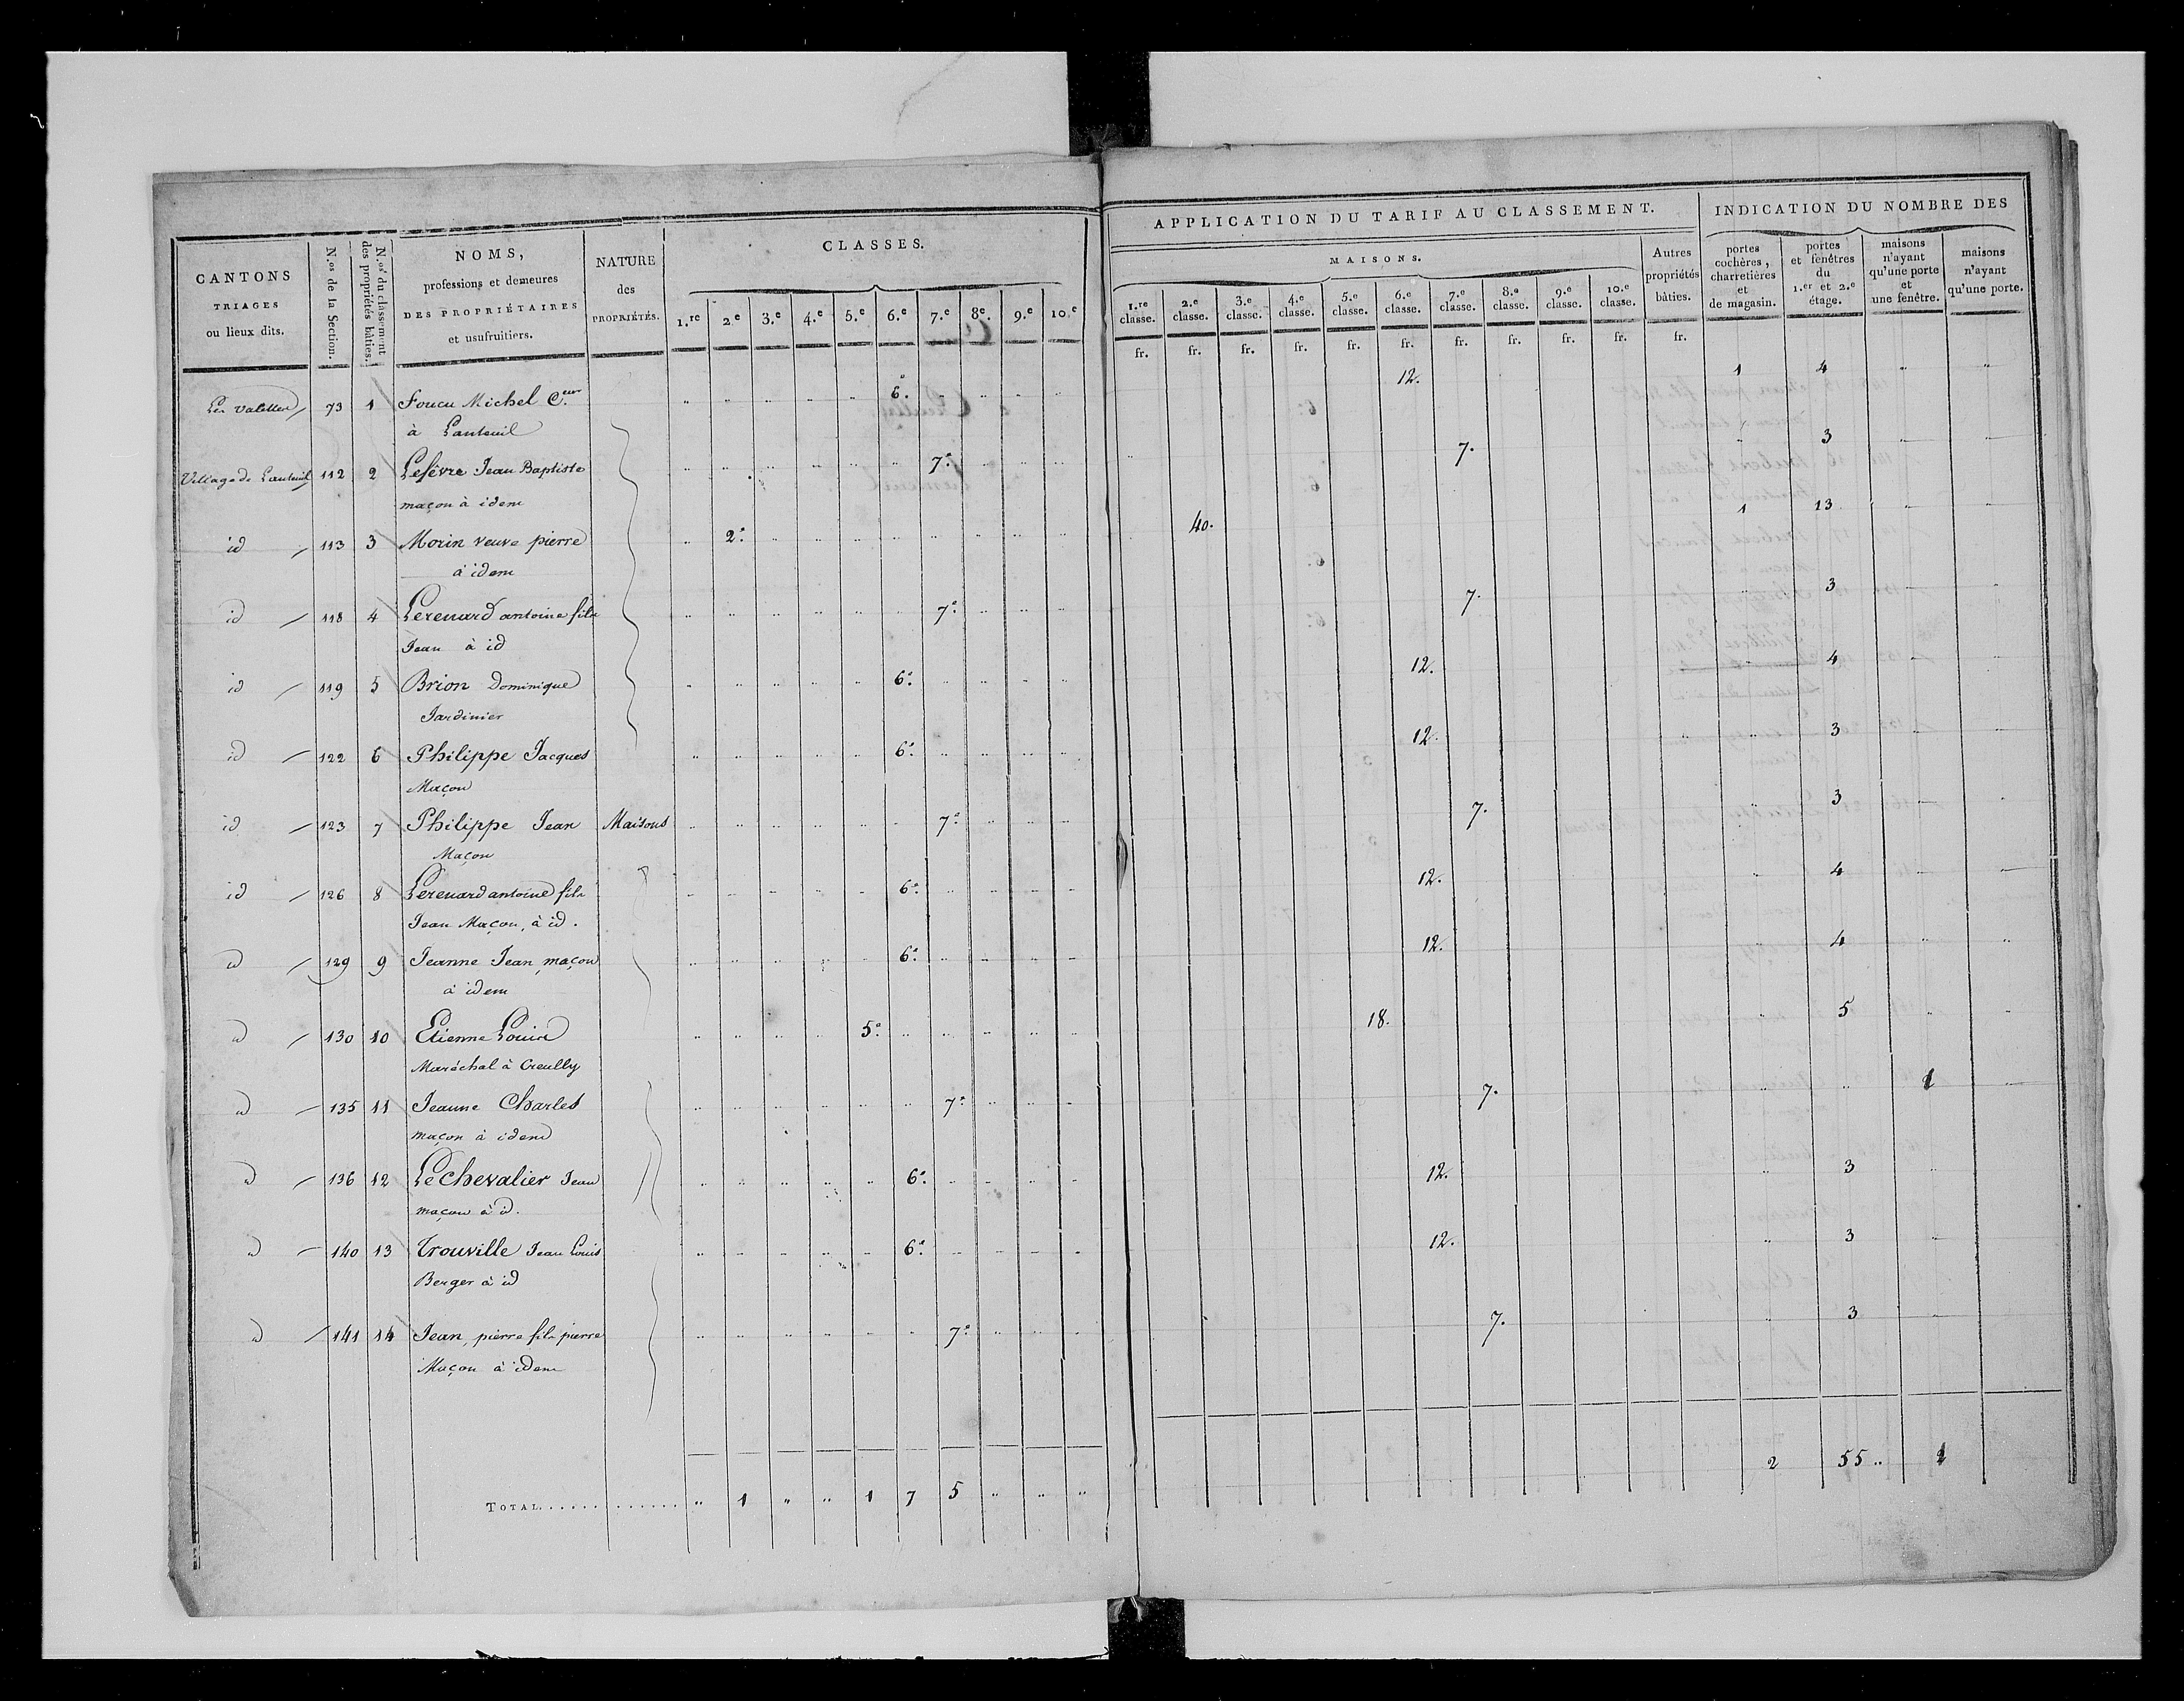 CANTONS TRIAGES ou lieux dits.
N.os de la Section.
N.os du classement des propriétés bâties.
NOMS, professions et demeures DES PROPRIÉTAIRES et usufruitiers.
NATURE des PROPRIÉTÉS.
CLASSES.
1.re 2.e 3.e 4.e 5.e 6.e 7.e 8e. 9.e 10.e
APPLICATION DU TARIF AU CLASSEMENT.
MAISONS.
1.re classe. 2.e classe. 3.e classe. 4.e classe. 5.e classe. 6.e classe. 7.e classe. 8.e classe. 9.e classe. 10.e classe.
Autres propriétés bâties.
fr. fr. fr. fr. fr. fr. fr. fr. fr. fr. fr.
INDICATION DU NOMBRE DES
portes cochères, charretières et de magasin.
portes et fenêtres du 1.er et 2.e étage.
maisons n'ayant qu'une porte et une fenêtre.
maisons n'ayant qu'une porte.
73 1 Foucu Michel C.eur 6.e 12. 1 4 " "
à Lanteuil
Village de Lanteuil 112 2 Lefêvre Jean Baptiste 7.e 7. " 3 " "
maçon à idem
id 113 3 Morin veuve pierre 2.e 40. 1 13 " "
à idem
id 118 4 Lerenard antoine fils 7.e 7. " 3 " "
Jean à id
id 119 5 Brion Dominique 6.e 12. " 4 " "
Jardinier
id 122 6 Philippe Jacques 6.e 12. " 3 " "
Maçon
id 123 7 Philippe Jean Maisons 7.e 7. " 3 " "
Maçon
id 126 8 Lerenard antoine fils 6.e 12. " 4 " "
Jean Maçon, à id.
id 129 9 Jeanne Jean maçon 6.e 12. " 4 " "
à idem
id 130 10 Etienne Louis 5.e 18. " 5 " "
Maréchal à Creully
id 135 11 Jeanne Charles 7.e 7. " " 1 "
maçon à idem
id 136 12 Le Chevalier Jean 6.e 12. " 3 "
maçon à id.
id 140 13 Trouville Jean Louis 6.e 12. " 3 "
Berger à id
id 141 14 Jean, pierre fils pierre 7.e 7. " 3 "
Maçon à idem
TOTAL............. " 1 " " 1 7 5 " " " 2 55 " 1